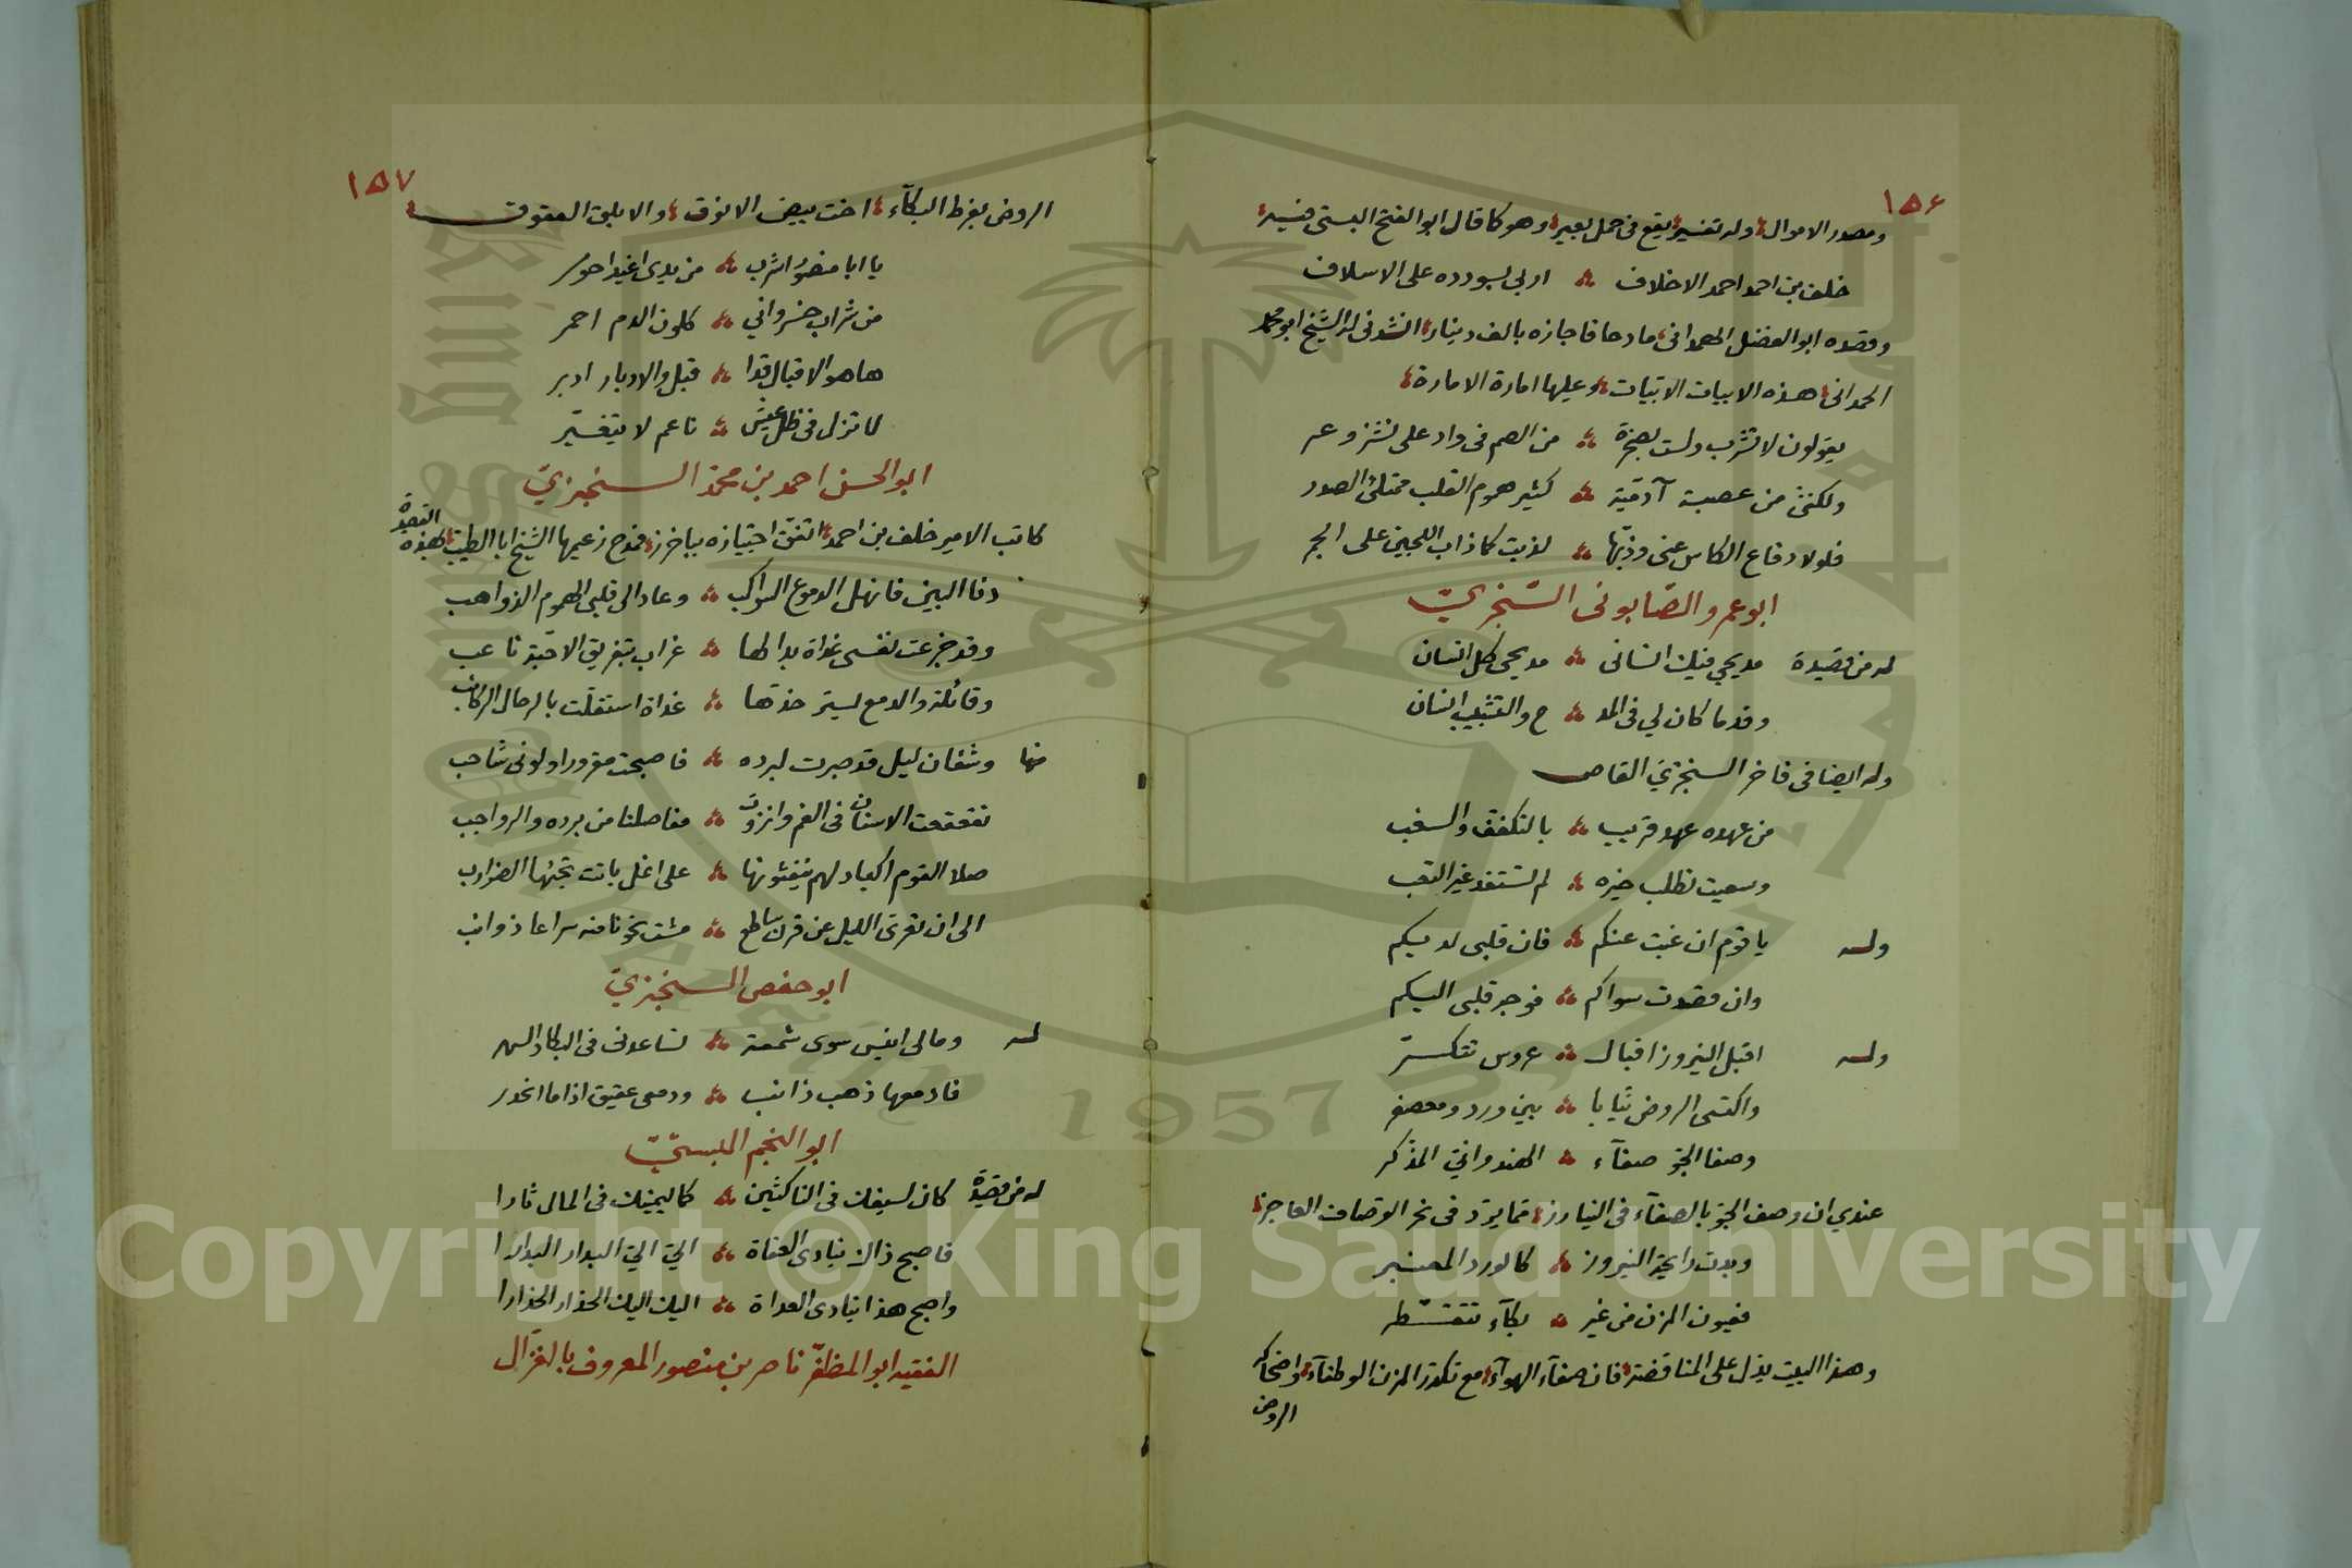 ١٥٦
ومصدر الاموال وله تفسير يقع في حمل بعير وهو كما قال ابو الفتح البستي فيه
خلف بن احمد احمد الاخلاف اربى بسودده على الاسلاف
وقصده ابو الفضل الهمداني مادحا فاجازه بالف دينار انشدني له الشيخ ابو محمد
الحمداني هذه الابيات الابيات وعليها امارة الامارة
يقولون لا تشرب ولست بصخرة من الصم في واد على نشز وعر
ولكنني من عصبة آدمية كثير هموم القلب ممتلئ الصدر
فلولا دفاع الكاس عني وذبها لذبت كما ذاب اللجين على الجمر
ابو عمرو الصّابوني السّنجزيّ
له من قصيدة مديحي فيك انساني مديحي كل انسان
وقدما كان لي في المد ح والتشبيب انسان
وله ايضا في فاخر السنجزيّ القاص
من عهده عهد قريب بالتكفف والسغب
وسعيت تطلب خيره لم تستفد غير التعب
وله يا قوم ان غبت عنكم فان قلبي لديكم
وان قصدت سواكم فوجه قلبي اليكم
وله اقبل النيروز اقبال عروس تتكسّر
واكتسى الروض ثيابا بين ورد ومعصفر
وصفا الجوّ صفآء الهندوانيّ المذكر
عندي ان وصف الجوّ بالصفآء في النيارز مما يردّ في نحر الوصاف العاجز
وبدت رايحة النيروز كالورد المعنبر
فعيون المزن من غير بكآء تتقطر
وهذا البيت يدل على المناقضة فان صفآء الهوآء مع تكدر المزن الوطفآء واضحاك
الروض
١٥٧
الروض بفرط البكآء اخت بيض الانوق والابلق العقوق
يا ابا منصور اشرب من يدي اغيد احور
من شراب خسرواني كلون الدم احمر
ها هو الاقبال قد ا قبل والادبار ادبر
لا تزل في ظل عيش ناعم لا يتغيّر
ابو الحسن احمد بن محمّد السنجزيّ
كاتب الامير خلف بن احمد اتفق اجتيازه بباخرز فمدح زعيمها الشيخ ابا الطيب بهذه القصيدة
دنا البين فانهل الدموع السواكب وعاد الى قلبي الهموم الذواهب
وقد جزعت نفسي غداة بدا لها غراب بتفريق الاحبّة ناعب
وقائلة والدمع يستر خدّها غداة استقلّت بالرحال الركائب
منها وشفان ليل قد صبرت لبرده فاصبحت مقرورا ولوني شاحب
تقعقعت الاسنان في الفم وانزوت مفاصلنا من برده والرواجب
صلا القوم اكباد لهم ينفثونها على اغل باتت تجنّها الضرايب
الى ان تعرى الليل عن قرن ساطع مشت نحونا منه سراعا ذوائب
ابو حفص السنجزيّ
له وما لي انيس سوى شمعة تساعدني في البكا والسهر
فادمعها ذهب ذائب ودمعي عقيق اذا ما انحدر
ابو النجم البستيّ
له من قصيدة كان لسيفك في الناكثين كما ليمينك في المال ثارا
فاصبح ذاك ينادي العفاة اليّ اليّ البدار البدارا
واصبح هذا ينادي العداة اليك اليك الحذار الحذارا
الفقيه ابو المظفّر ناصر بن منصور المعروف بالغزّال
1957
Copyright © King Saud University